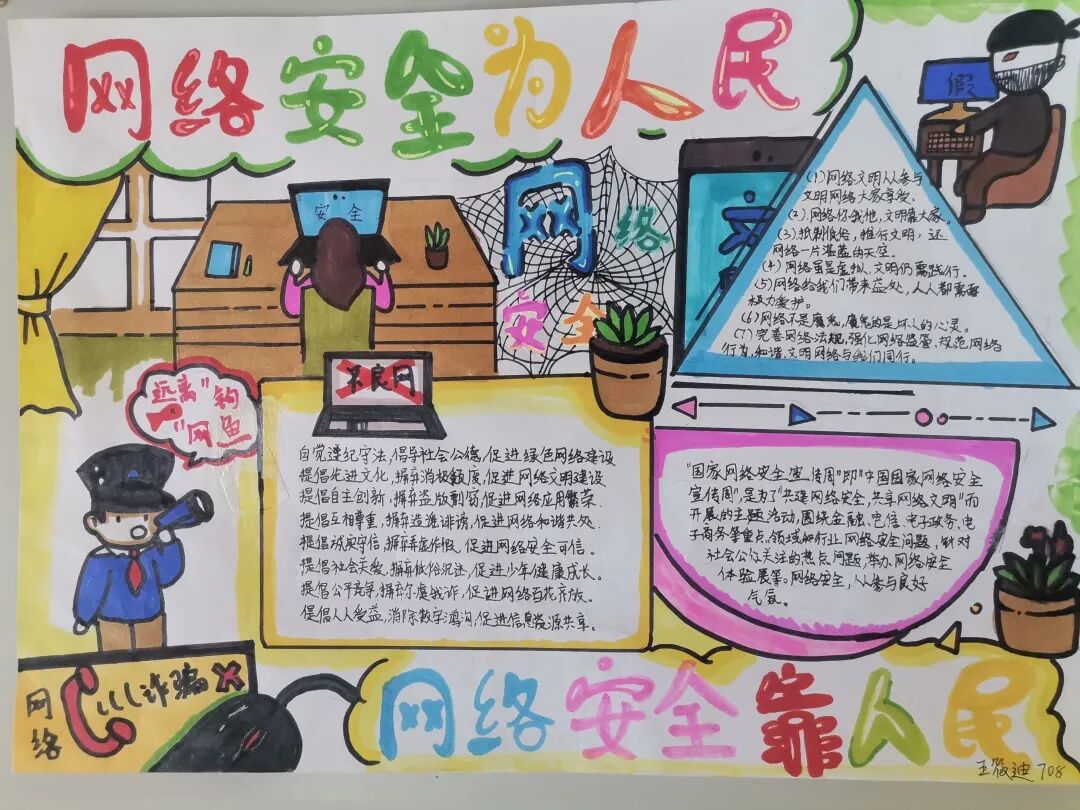 网络安全为人民
假
安全
网络
安全
(1)网络文明人人参与
文明网络大家享受。
(2).网络你我他,文明靠大家。
(3).抵制低俗,推行文明,还
网络一片湛蓝的天空。
(4)网络虽是虚拟,文明仍需践行。
(5)网络给我们带来益处,人人都需要
极力爱护。
(6)网络不是魔鬼,魔鬼的是坏人的心灵。
(7)完善网络法规,强化网络监管,规范网络
行为,和谐、文明网络与我们同行。
远离"钓
"网鱼
不良网
自觉遵纪守法,倡导社会公德,促进绿色网络建设
提倡先进文化,摒弃消极颓废,促进网络文明建设
提倡自主创新,摒弃盗版剽窃,促进网络应用繁荣.
提倡互相尊重,摒弃造谣诽谤,促进网络和谐共处.
提倡诚实守信,摒弃弄虚作假,促进网络安全可信.
提倡社会关爱,摒弃低俗沉迷,促进少年健康成长。
提倡公平竞争,摒弃尔虞我诈,促进网络百花齐放。
提倡人人受益,消除数字鸿沟,促进信息资源共享。
"国家网络安全宣传周"即"中国国家网络安全
宣传周",是为了"共建网络安全,共享网络文明"而
开展的主题活动,围绕金融、电信、电子政务、电
子商务等重点、领域和行业网络安全问题,针对
社会公众关注的热点问题,举办网络安全
体验展等,网络安全,人人参与良好
气氛。
网络
诈骗
网络安全靠人民
708